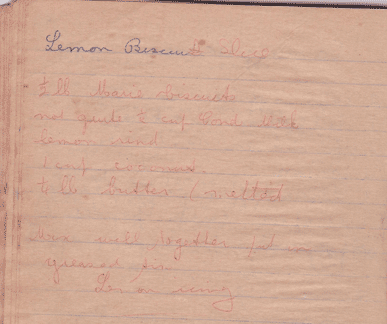 Lemon Biscuit Slice
½ lb Marie biscuits
not quite ½ cup Cond Milk
lemon rind
1 cup coconut.
¼ lb butter (melted
Mix well together, put in
greased tin
Lemon icing